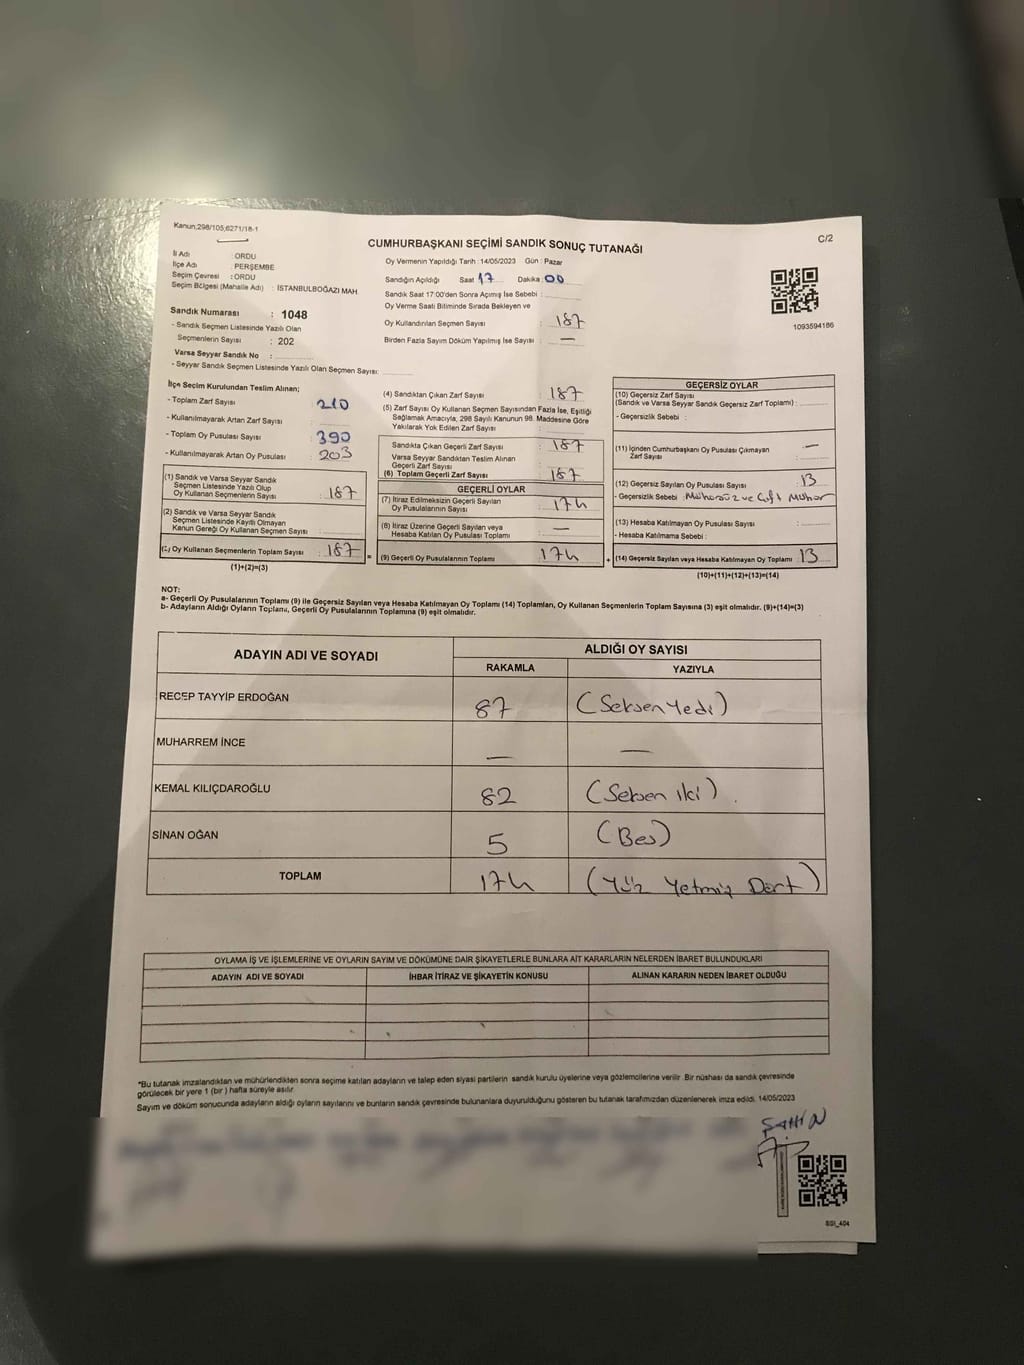 Kanun;298/105;6271/18-1
C/2
CUMHURBAŞKANI SEÇİMİ SANDIK SONUÇ TUTANAĞI
İl Adı : ORDU
İlçe Adı : PERŞEMBE
Seçim Çevresi : ORDU
Seçim Bölgesi (Mahalle Adı) : İSTANBULBOĞAZI MAH.
Sandık Numarası : 1048
- Sandık Seçmen Listesinde Yazılı Olan
Seçmenlerin Sayısı : 202
Varsa Seyyar Sandık No :
- Seyyar Sandık Seçmen Listesinde Yazılı Olan Seçmen Sayısı:
Oy Vermenin Yapıldığı Tarih : 14/05/2023 Gün : Pazar
Sandığın Açıldığı Saat 17 Dakika : 00
Sandık Saat 17:00'den Sonra Açımış İse Sebebi :
Oy Verme Saati Bitiminde Sırada Bekleyen ve
Oy Kullandırılan Seçmen Sayısı : 187
Birden Fazla Sayım Döküm Yapılmış İse Sayısı : —
1093594186
İlçe Seçim Kurulundan Teslim Alınan;
- Toplam Zarf Sayısı : 210
- Kullanılmayarak Artan Zarf Sayısı :
- Toplam Oy Pusulası Sayısı : 390
- Kullanılmayarak Artan Oy Pusulası : 203
(1) Sandık ve Varsa Seyyar Sandık
Seçmen Listesinde Yazılı Olup
Oy Kullanan Seçmenlerin Sayısı : 187
(2) Sandık ve Varsa Seyyar Sandık
Seçmen Listesinde Kayıtlı Olmayan
Kanun Gereği Oy Kullanan Seçmen Sayısı :
Oy Kullanan Seçmenlerin Toplam Sayısı : 187
(1)+(2)=(3)
(4) Sandıktan Çıkan Zarf Sayısı : 187
(5) Zarf Sayısı Oy Kullanan Seçmen Sayısından Fazla İse, Eşitliği
Sağlamak Amacıyla; 298 Sayılı Kanunun 98. Maddesine Göre
Yakılarak Yok Edilen Zarf Sayısı :
Sandıkta Çıkan Geçerli Zarf Sayısı : 187
Varsa Seyyar Sandıktan Teslim Alınan
Geçerli Zarf Sayısı :
(6) Toplam Geçerli Zarf Sayısı : 187
GEÇERLİ OYLAR
(7) İtiraz Edilmeksizin Geçerli Sayılan
Oy Pusulalarının Sayısı : 174
(8) İtiraz Üzerine Geçerli Sayılan veya
Hesaba Katılan Oy Pusulası Toplamı : —
= (9) Geçerli Oy Pusulalarının Toplamı : 174
GEÇERSİZ OYLAR
(10) Geçersiz Zarf Sayısı
(Sandık ve Varsa Seyyar Sandık Geçersiz Zarf Toplamı) :
- Geçersizlik Sebebi :
(11) İçinden Cumhurbaşkanı Oy Pusulası Çıkmayan
Zarf Sayısı : —
(12) Geçersiz Sayılan Oy Pusulası Sayısı : 13
- Geçersizlik Sebebi : Mühürsüz ve Çift Mühür
(13) Hesaba Katılmayan Oy Pusulası Sayısı :
- Hesaba Katılmama Sebebi :
+ (14) Geçersiz Sayılan veya Hesaba Katılmayan Oy Toplamı : 13
(10)+(11)+(12)+(13)=(14)
NOT:
a- Geçerli Oy Pusulalarının Toplamı (9) ile Geçersiz Sayılan veya Hesaba Katılmayan Oy Toplamı (14) Toplamları, Oy Kullanan Seçmenlerin Toplam Sayısına (3) eşit olmalıdır. (9)+(14)=(3)
b- Adayların Aldığı Oyların Toplamı, Geçerli Oy Pusulalarının Toplamına (9) eşit olmalıdır.
ADAYIN ADI VE SOYADI
ALDIĞI OY SAYISI
RAKAMLA YAZIYLA
RECEP TAYYİP ERDOĞAN 87 (Seksen Yedi)
MUHARREM İNCE — —
KEMAL KILIÇDAROĞLU 82 (Seksen iki)
SİNAN OĞAN 5 (Beş)
TOPLAM 174 (Yüz Yetmiş Dört)
OYLAMA İŞ VE İŞLEMLERİNE VE OYLARIN SAYIM VE DÖKÜMÜNE DAİR ŞİKAYETLERLE BUNLARA AİT KARARLARIN NELERDEN İBARET BULUNDUKLARI
ADAYIN ADI VE SOYADI İHBAR İTİRAZ VE ŞİKAYETİN KONUSU ALINAN KARARIN NEDEN İBARET OLDUĞU
*Bu tutanak imzalandıktan ve mühürlendikten sonra seçime katılan adayların ve talep eden siyasi partilerin sandık kurulu üyelerine veya gözlemcilerine verilir. Bir nüshası da sandık çevresinde
görülecek bir yere 1 (bir) hafta süreyle asılır.
Sayım ve döküm sonucunda adayların aldığı oyların sayılarını ve bunların sandık çevresinde bulunanlara duyurulduğunu gösteren bu tutanak tarafımızdan düzenlenerek imza edildi. 14/05/2023
ŞAHİN
SGI_404